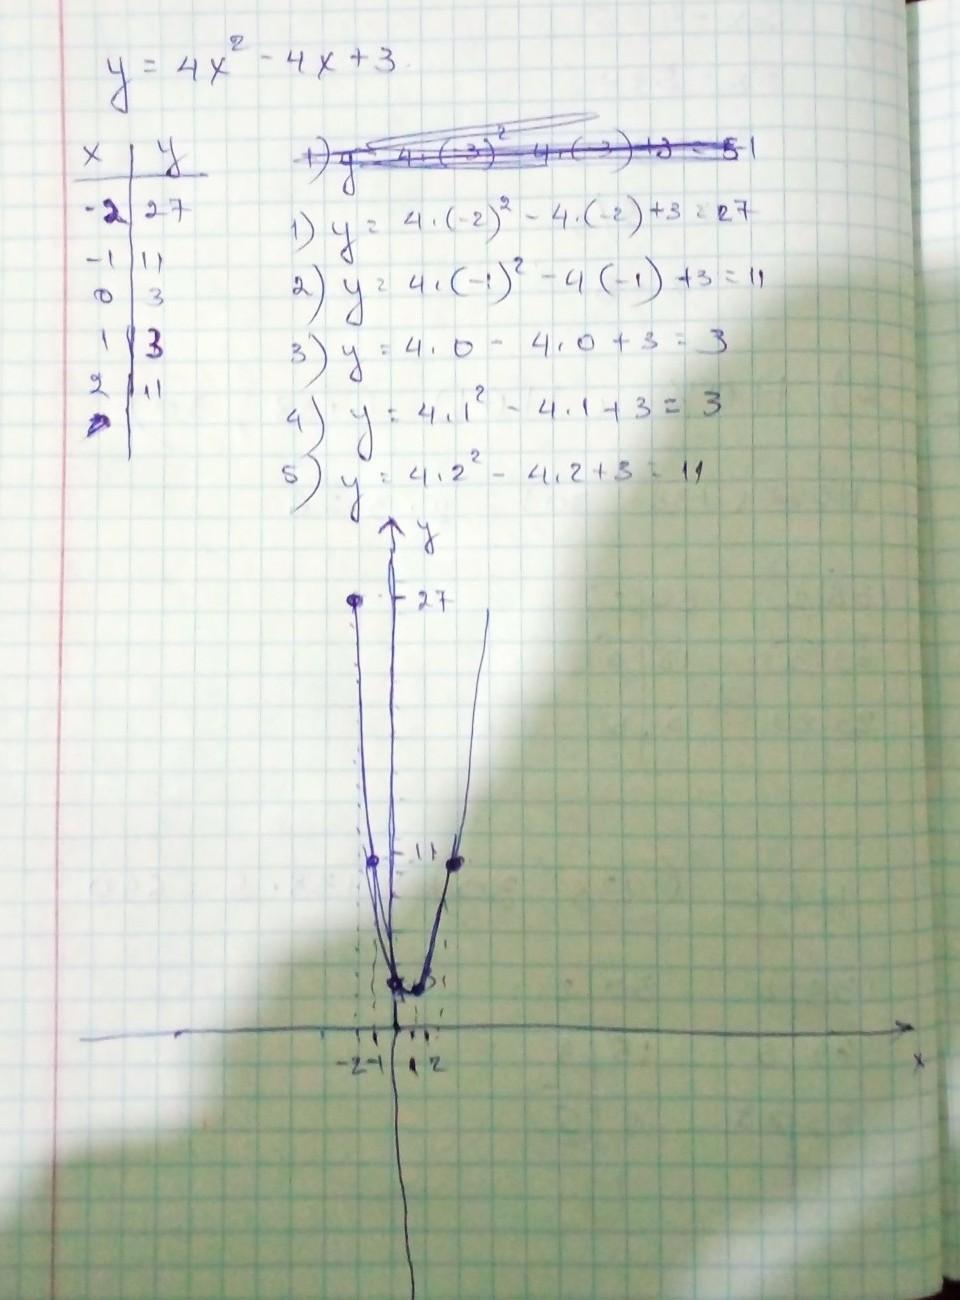 y = 4x² - 4x + 3
x y
-2 27
-1 11
0 3
1 3
2 11
1) y = 4·(-3)² - 4·(-3) + 3 = 51
1) y = 4·(-2)² - 4·(-2) + 3 = 27
2) y = 4·(-1)² - 4(-1) + 3 = 11
3) y = 4·0 - 4·0 + 3 = 3
4) y = 4·1² - 4·1 + 3 = 3
5) y = 4·2² - 4·2 + 3 = 11
y
27
11
3
-2 -1 1 2
x